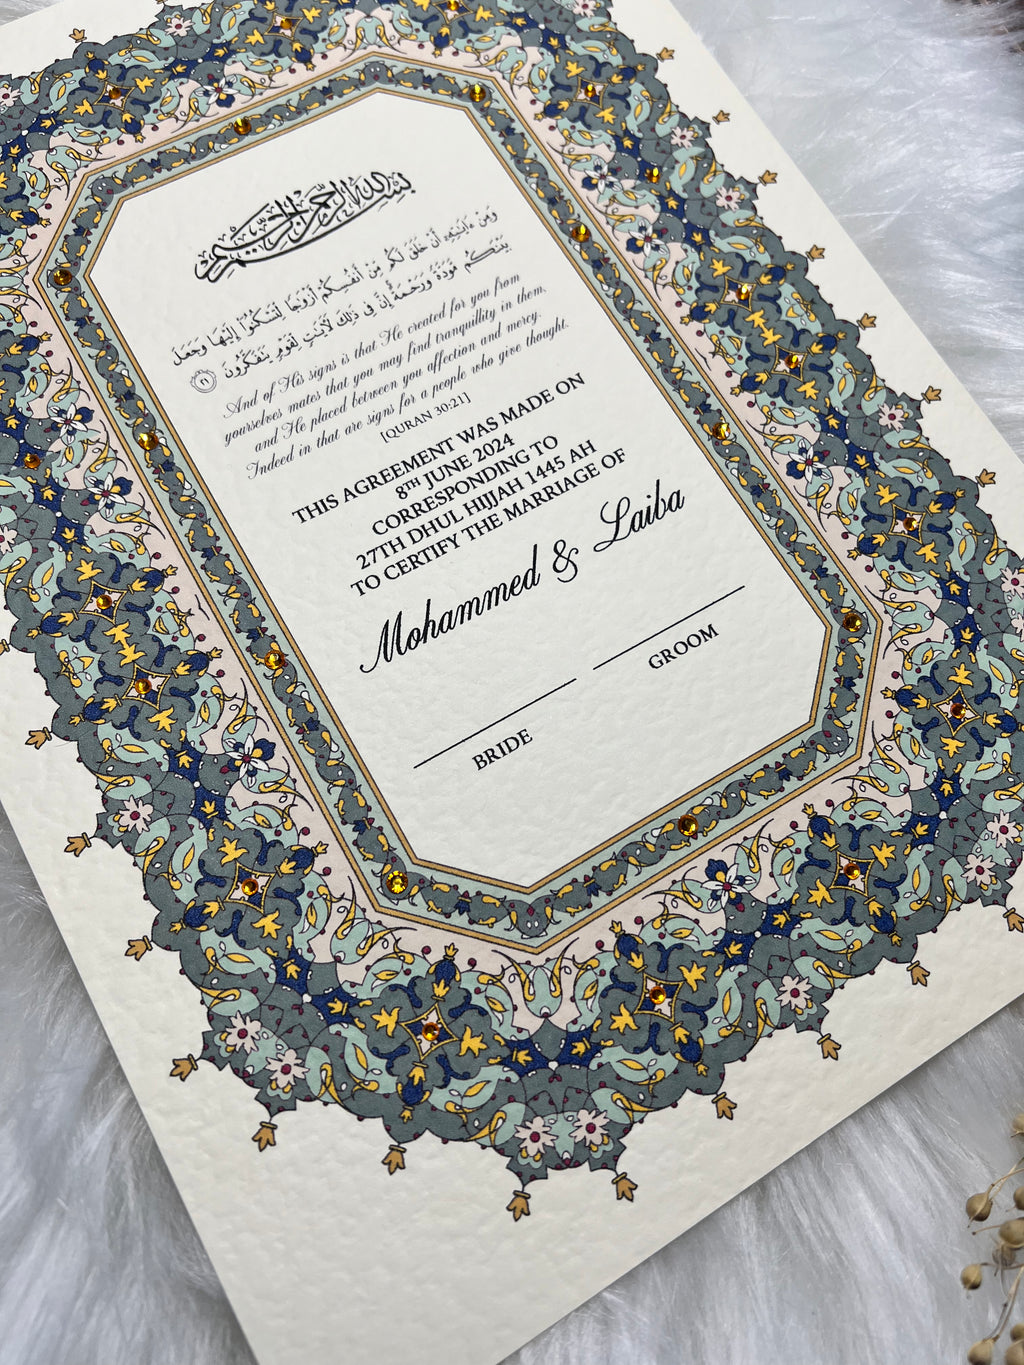 بسم الله الرحمن الرحيم
وَمِنْ ءَايَٰتِهِۦٓ أَنْ خَلَقَ لَكُم مِّنْ أَنفُسِكُمْ أَزْوَٰجًا لِّتَسْكُنُوٓا۟ إِلَيْهَا وَجَعَلَ
بَيْنَكُم مَّوَدَّةً وَرَحْمَةً ۚ إِنَّ فِى ذَٰلِكَ لَءَايَٰتٍ لِّقَوْمٍ يَتَفَكَّرُونَ ٢١
And of His signs is that He created for you from
yourselves mates that you may find tranquillity in them,
and He placed between you affection and mercy.
Indeed in that are signs for a people who give thought.
[QURAN 30:21]
THIS AGREEMENT WAS MADE ON
8TH JUNE 2024
CORRESPONDING TO
27TH DHUL HIJJAH 1445 AH
TO CERTIFY THE MARRIAGE OF
Mohammed & Laiba
BRIDE GROOM